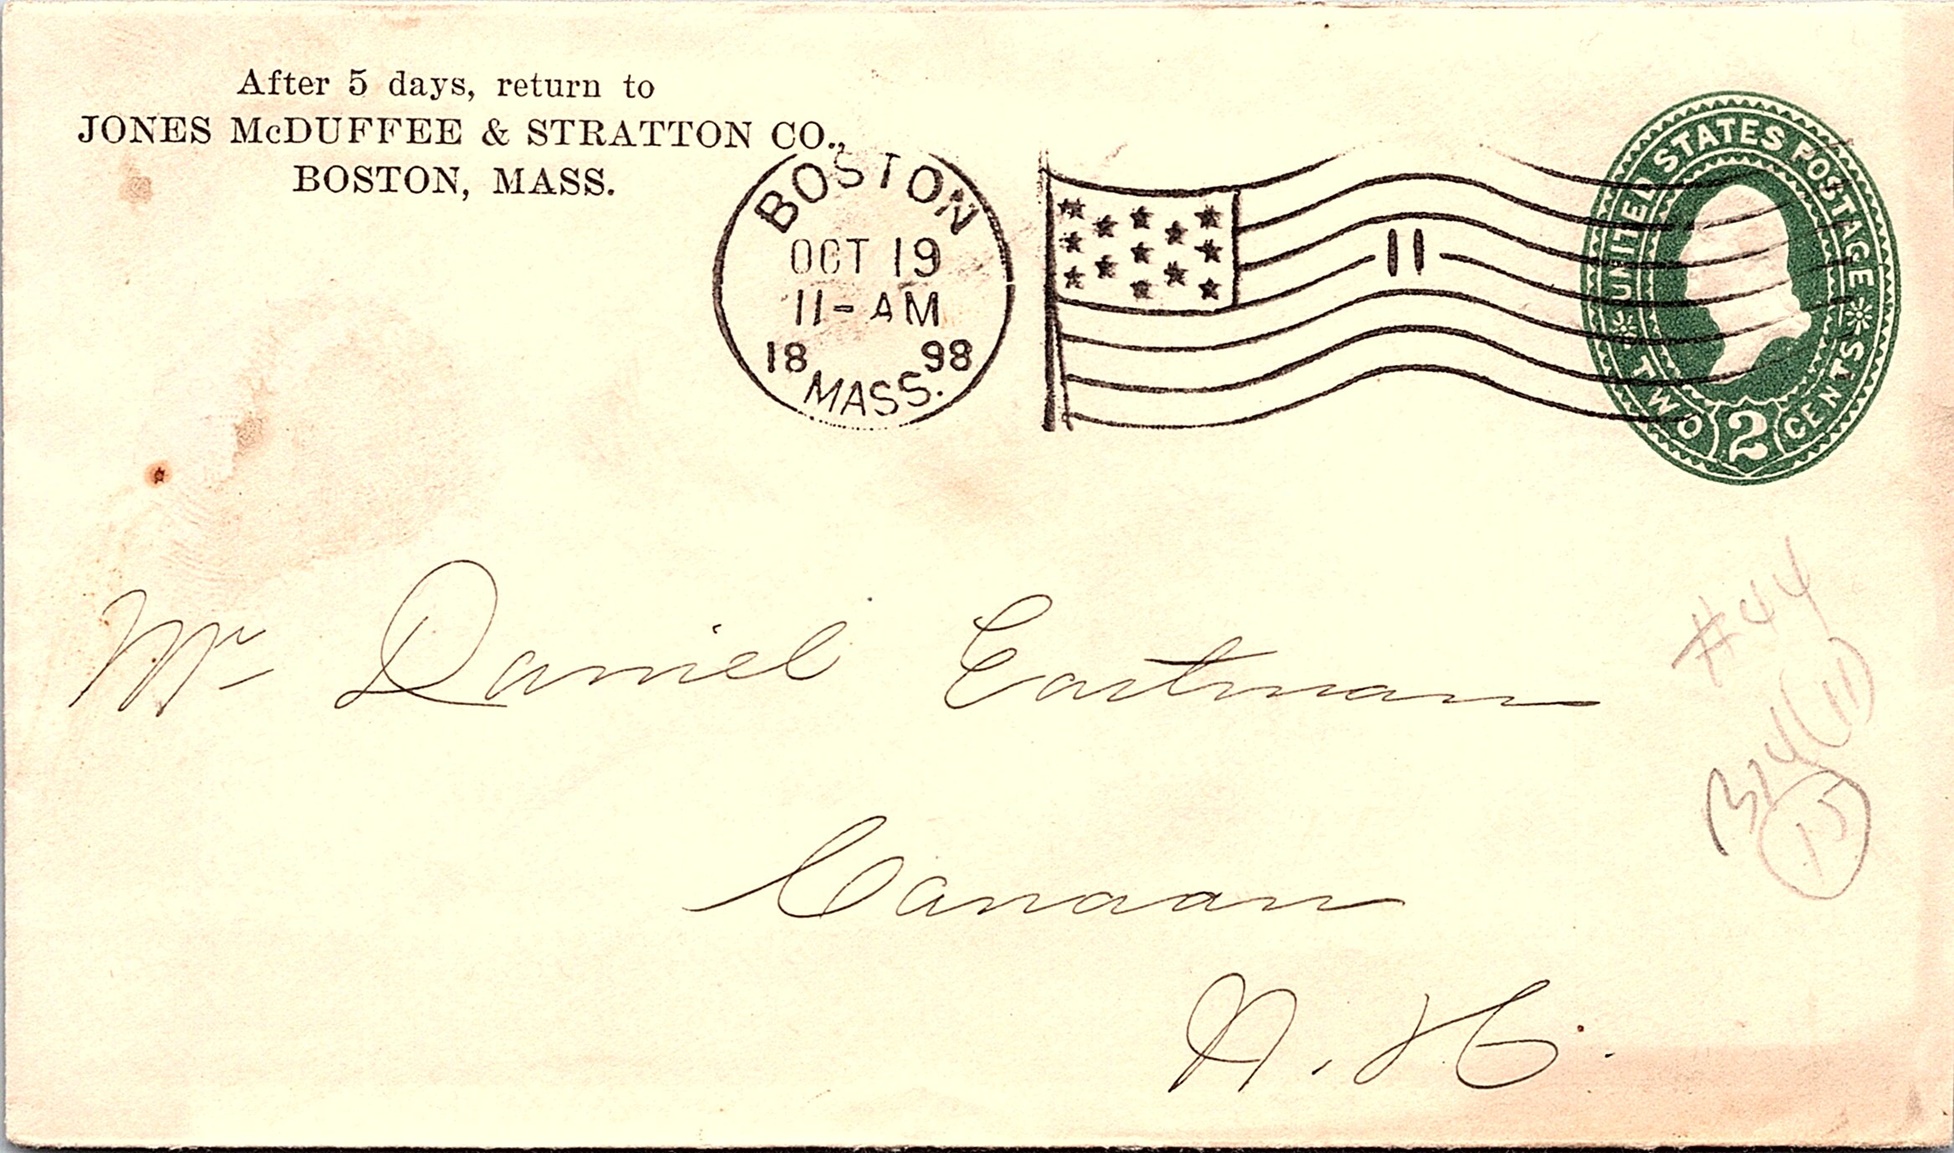 After 5 days, return to
JONES McDUFFEE & STRATTON CO.,
BOSTON, MASS.
BOSTON
OCT 19
11-AM
18 98
MASS.
11
UNITED STATES POSTAGE
TWO 2 CENTS
Mr Daniel Eastman
Canaan
N. H.
#44
B14(11)
15